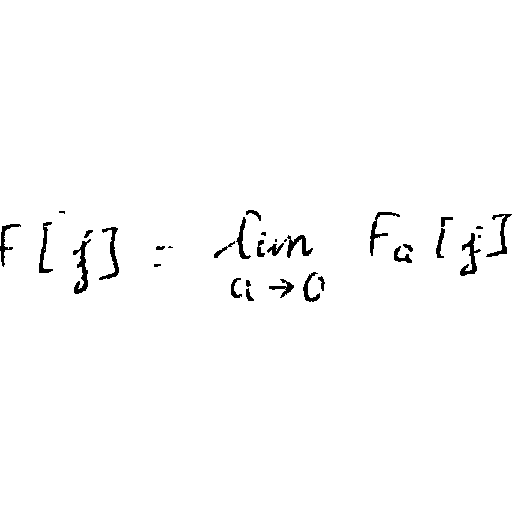 F[j] = lim_{a→0} F_a[j]